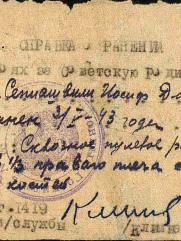 СПРАВКА О РАНЕНИИ
ях за советскую роди
Сепиашвили Иосиф Д
нен 3/V 43 года
Сквозное пулевое р
1/3 правого плеча с
костей
г. 1419
/службы